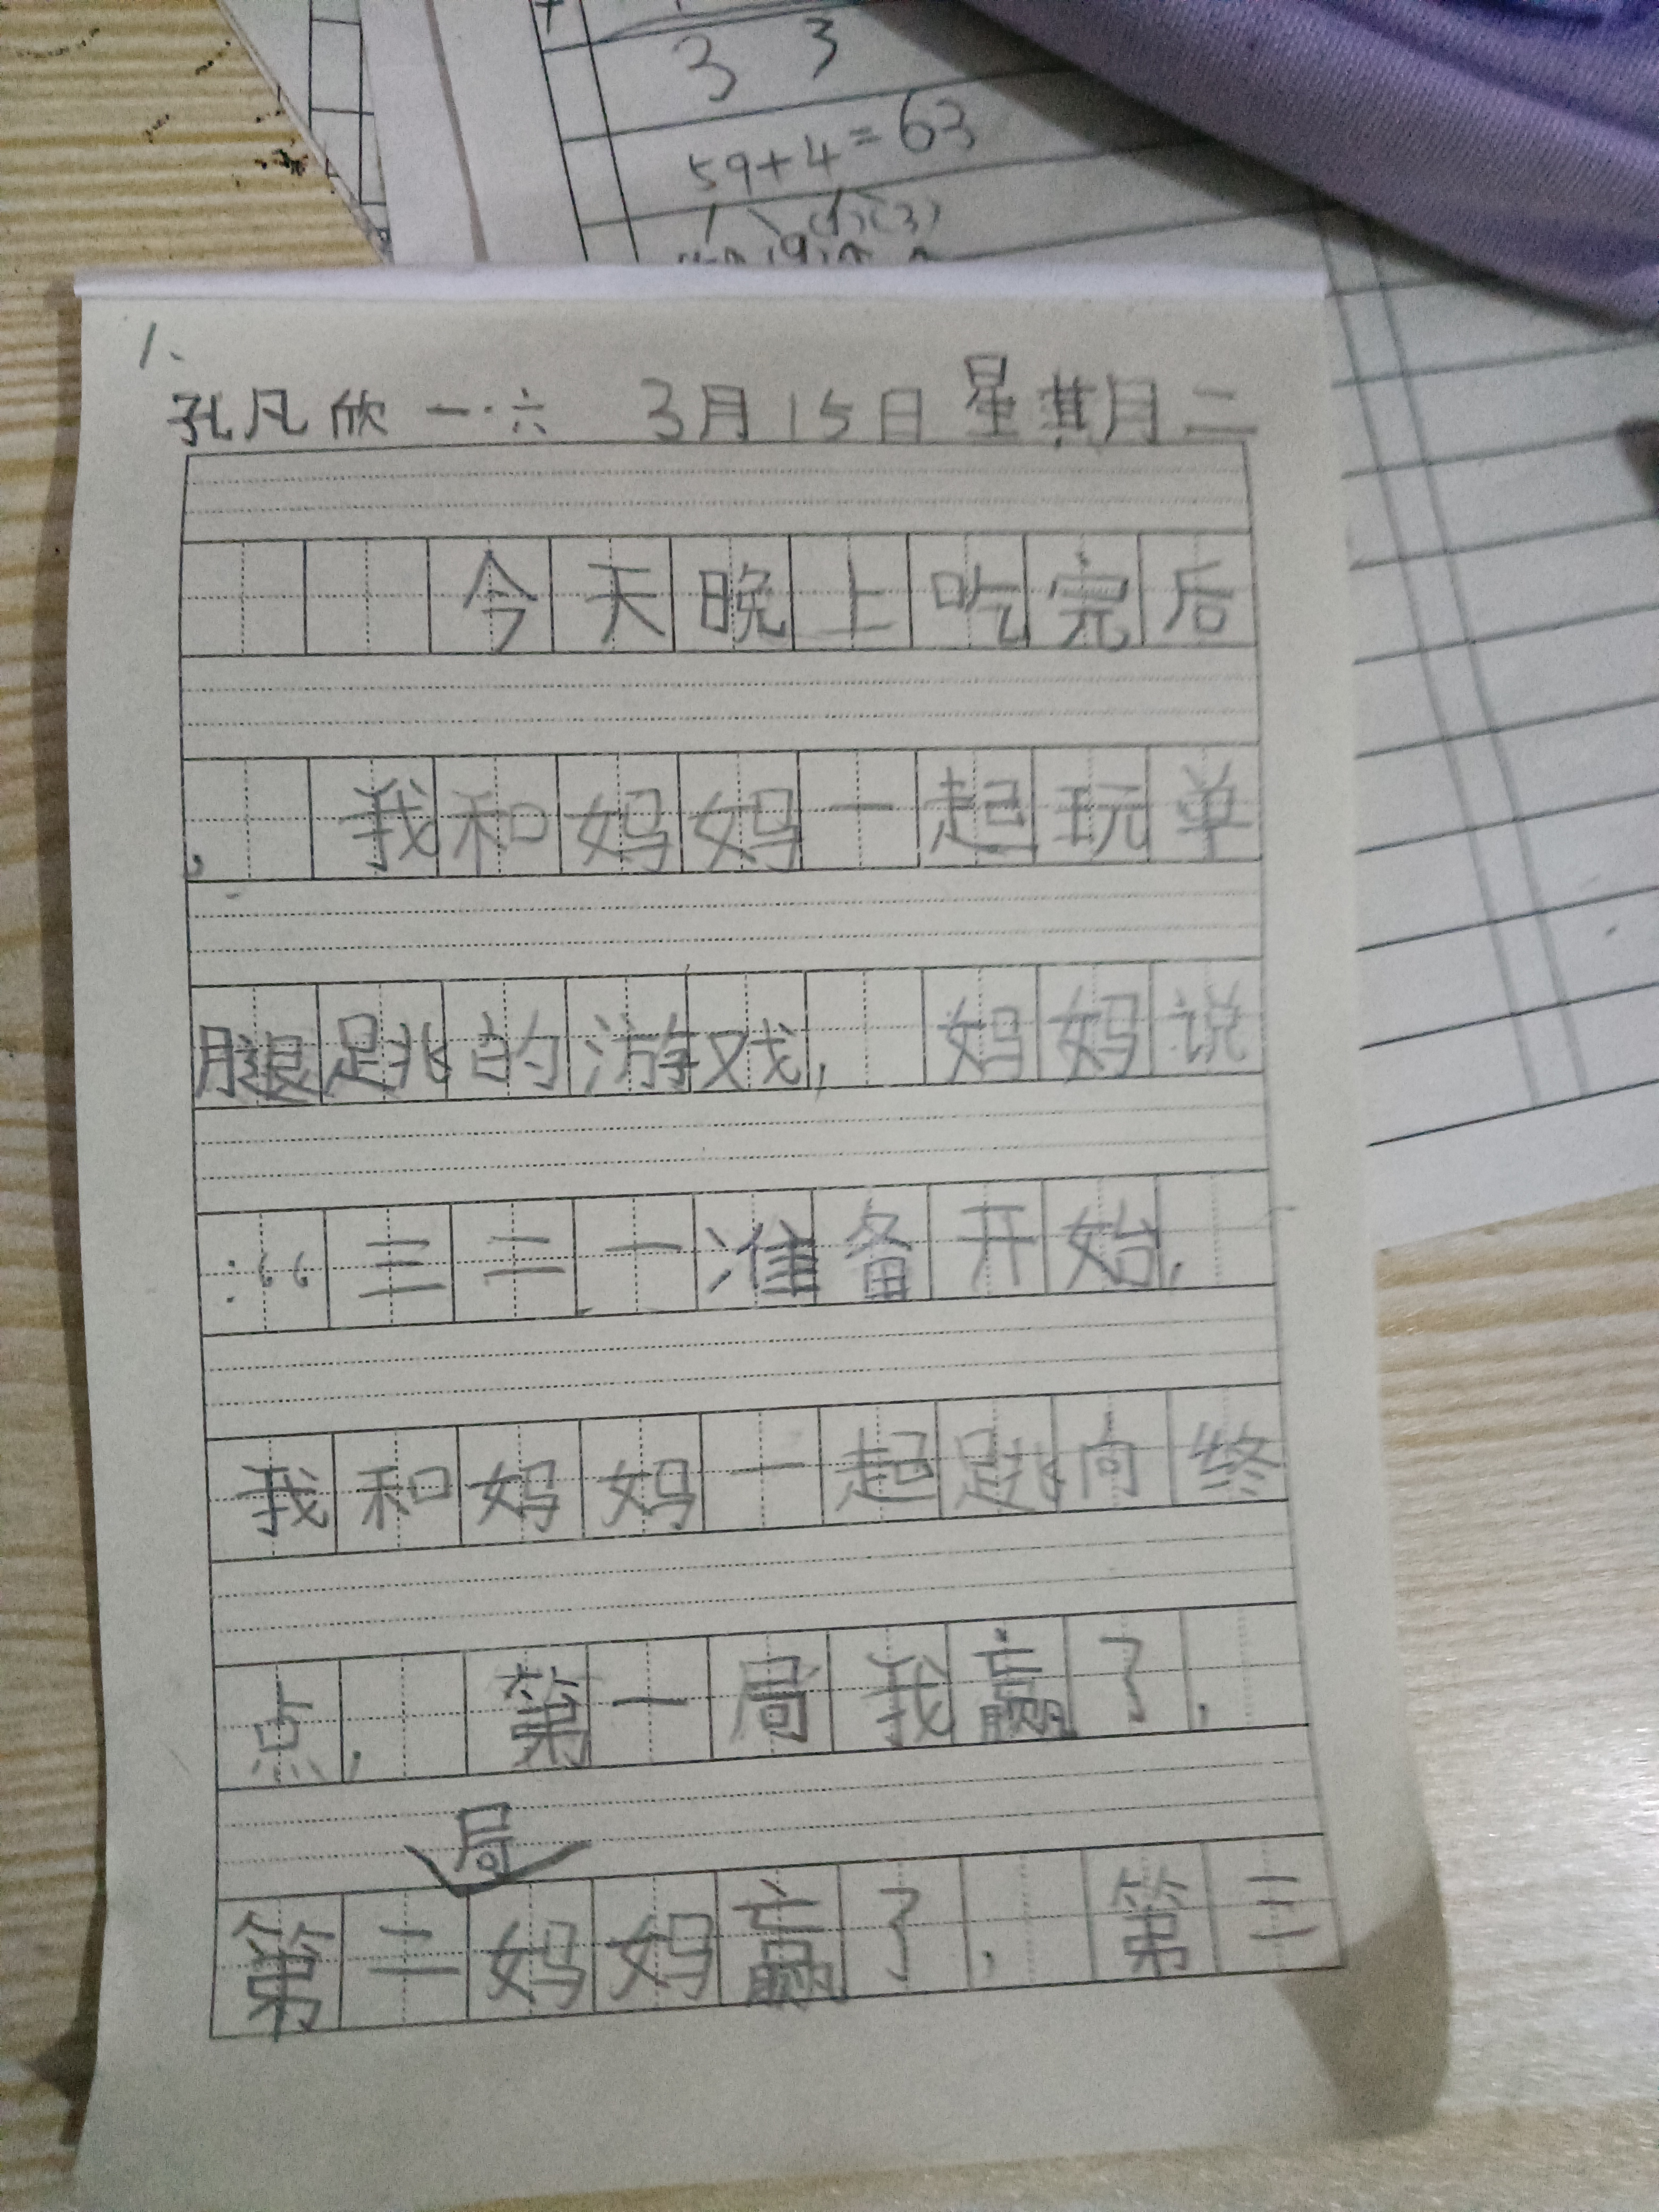 3 3
59+4=63
(1)(3)
1、
孔凡欣 一·六 3月15日 星其月二
今天晚上吃完后
，我和妈妈一起玩单
腿跳的游戏，妈妈说
：“三二一准备开始，
我和妈妈一起跳向终
点，第一局我赢了，
局
第二妈妈赢了，第三